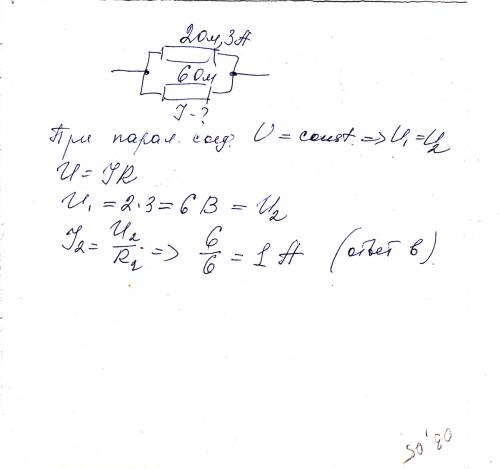 2 Ом, 3А
6 Ом
I-?
При парал. соед. U = const. => U₁ = U₂
U = IR
U₁ = 2·3 = 6 В = U₂
I₂ = U₂/R₂ => 6/6 = 1 А (ответ в)
03.05